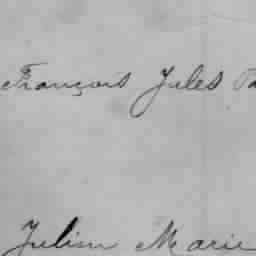 François Jules
Julien Marie